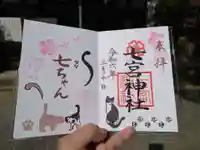 奉拝
七宮神社
令和六年
七ちゃん